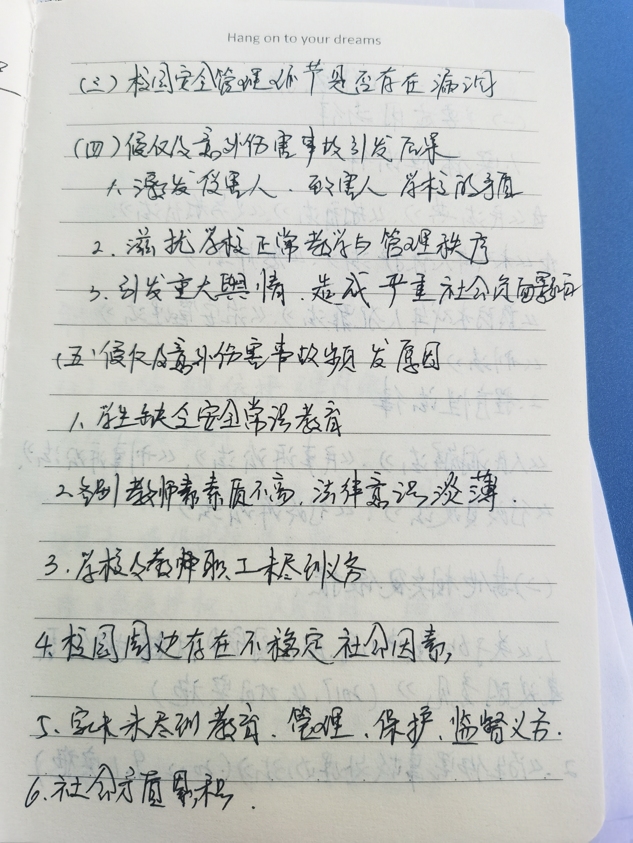 Hang on to your dreams
(三)校园安全管理环节是否存在漏洞
(四)侵权及意外伤害事故引发后果
1. 激发侵害人、受害人、学校的矛盾
2. 滋扰学校正常教学与管理秩序
3. 引发重大舆情、造成严重社会负面影响
(五)侵权及意外伤害事故频发原因
1. 学生缺乏安全常识教育
2. 各别教师素质不高,法律意识淡薄.
3. 学校及教师职工未尽到义务
4. 校园周边存在不稳定社会因素,
5. 家长未尽到教育、管理、保护、监督义务.
6. 社会矛盾累积.